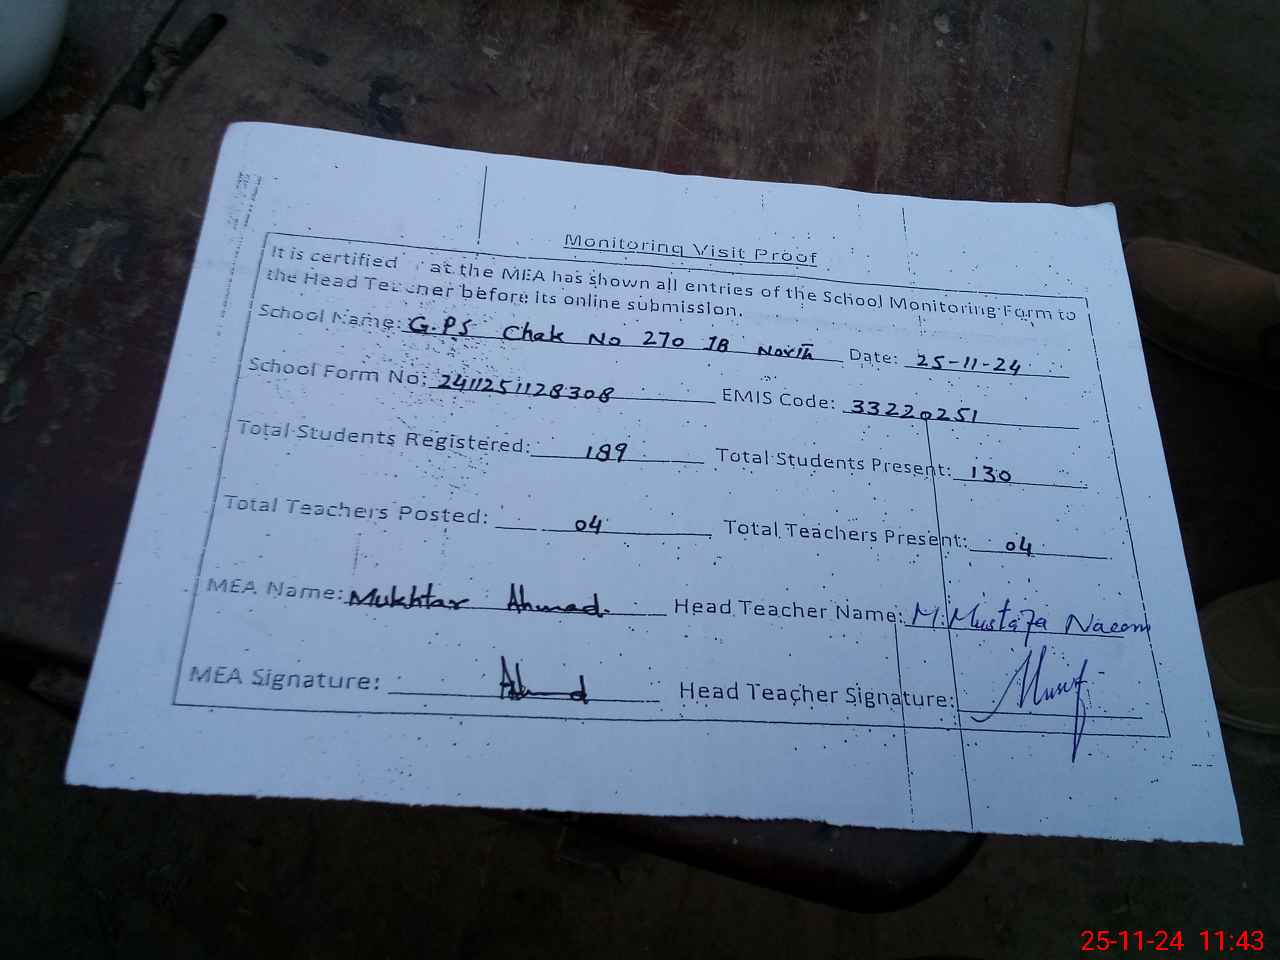 Monitoring Visit Proof
It is certified at the MEA has shown all entries of the School Monitoring Form to
the Head Teacher before its online submission.
School Name: G.PS Chak No 270 JB North Date: 25-11-24
School Form No: 2411251128308 EMIS Code: 33220251
Total Students Registered: 189 Total Students Present: 130
Total Teachers Posted: 04 Total Teachers Present: 04
MEA Name: Mukhtar Ahmad. Head Teacher Name: M. Mustafa Naeem
MEA Signature: Ahmad Head Teacher Signature:
25-11-24 11:43